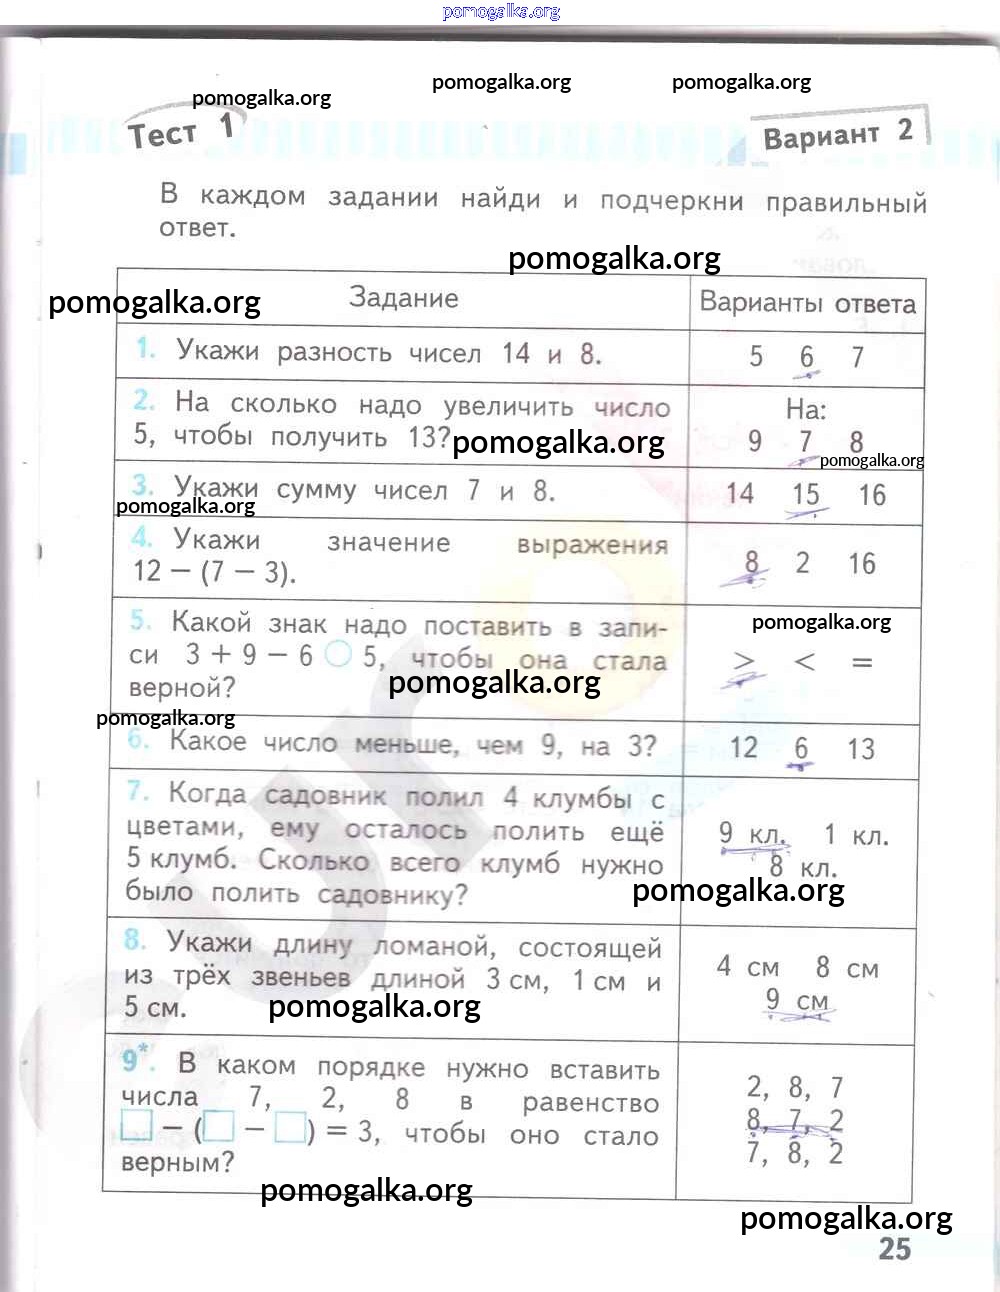 pomogalka.org
pomogalka.org pomogalka.org
pomogalka.org
Тест 1
Вариант 2
В каждом задании найди и подчеркни правильный
ответ.
pomogalka.org
pomogalka.org
Задание
Варианты ответа
1. Укажи разность чисел 14 и 8.
5 6 7
2. На сколько надо увеличить число
5, чтобы получить 13?
pomogalka.org
На:
9 7 8
pomogalka.org
3. Укажи сумму чисел 7 и 8.
14 15 16
pomogalka.org
4. Укажи значение выражения
12 − (7 − 3).
8 2 16
5. Какой знак надо поставить в запи-
си 3 + 9 − 6 ○ 5, чтобы она стала
верной?
pomogalka.org
pomogalka.org
> < =
pomogalka.org
6. Какое число меньше, чем 9, на 3?
12 6 13
7. Когда садовник полил 4 клумбы с
цветами, ему осталось полить ещё
5 клумб. Сколько всего клумб нужно
было полить садовнику?
9 кл. 1 кл.
8 кл.
pomogalka.org
8. Укажи длину ломаной, состоящей
из трёх звеньев длиной 3 см, 1 см и
5 см.
pomogalka.org
4 см 8 см
9 см
9*. В каком порядке нужно вставить
числа 7, 2, 8 в равенство
□ − (□ − □) = 3, чтобы оно стало
верным?
2, 8, 7
8, 7, 2
7, 8, 2
pomogalka.org
pomogalka.org
25